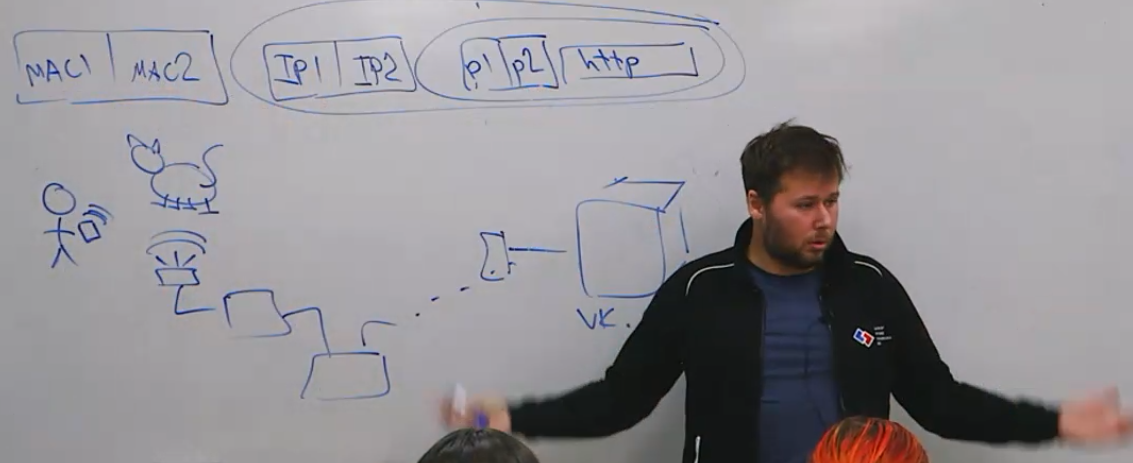 MAC1 MAC2 IP1 IP2 p1 p2 http
VK.